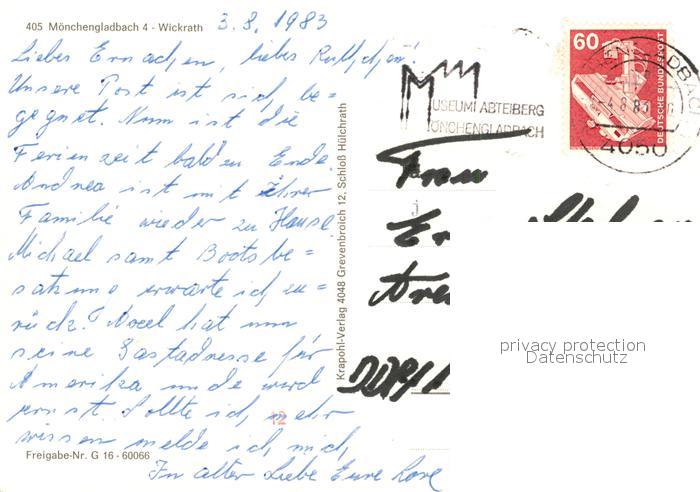 405 Mönchengladbach 4 - Wickrath
3.8.1983
Liebes Ernachen, liebes Ruthchen!
Unsere Post ist sich be=
gegnet. Nun ist die
Ferienzeit bald zu Ende.
Andrea ist mit ihrer
Familie wieder zu Hause
Michael samt Boots be=
satzung erwarte ich zu=
rück. Marcel hat nun
seine Gastadresse für
Amerika und es wird
ernst. Sollte ich mehr
wissen melde ich mich,
In alter Liebe Eure Lore
Freigabe-Nr. G 16 - 60066
12
Krapohl-Verlag 4048 Grevenbroich 12, Schloß Hülchrath
MUSEUM ABTEIBERG
MÖNCHENGLADBACH
60
DEUTSCHE BUNDESPOST
-4.8.83
4050
Frau
DDR/
privacy protection
Datenschutz